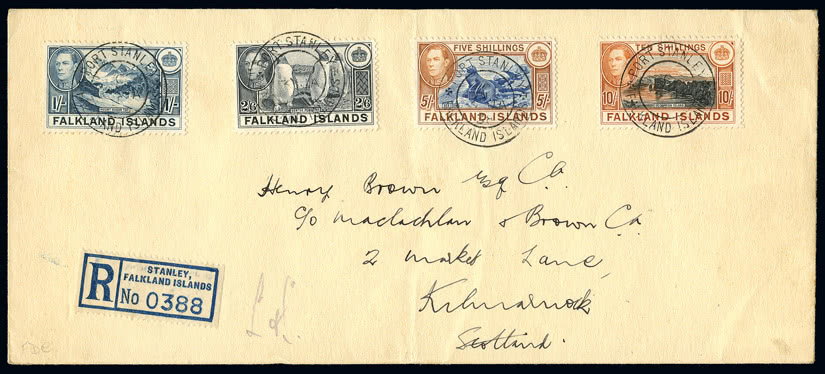 1/- 1/-
FALKLAND ISLANDS
PORT STANLEY
FALKLAND ISLANDS
2/6 2/6
FALKLAND ISLANDS
PORT STANLEY
FIVE SHILLINGS
5/- 5/-
FALKLAND ISLANDS
PORT STANLEY
FALKLAND ISLANDS
TEN SHILLINGS
10/- 10/-
FALKLAND ISLANDS
PORT STANLEY
FALKLAND ISLANDS
Henry Brown Esq C.A.
c/o Maclachlan & Brown C.A.
2 Market Lane,
Kilmarnock
Scotland.
R
STANLEY,
FALKLAND ISLANDS
No 0388